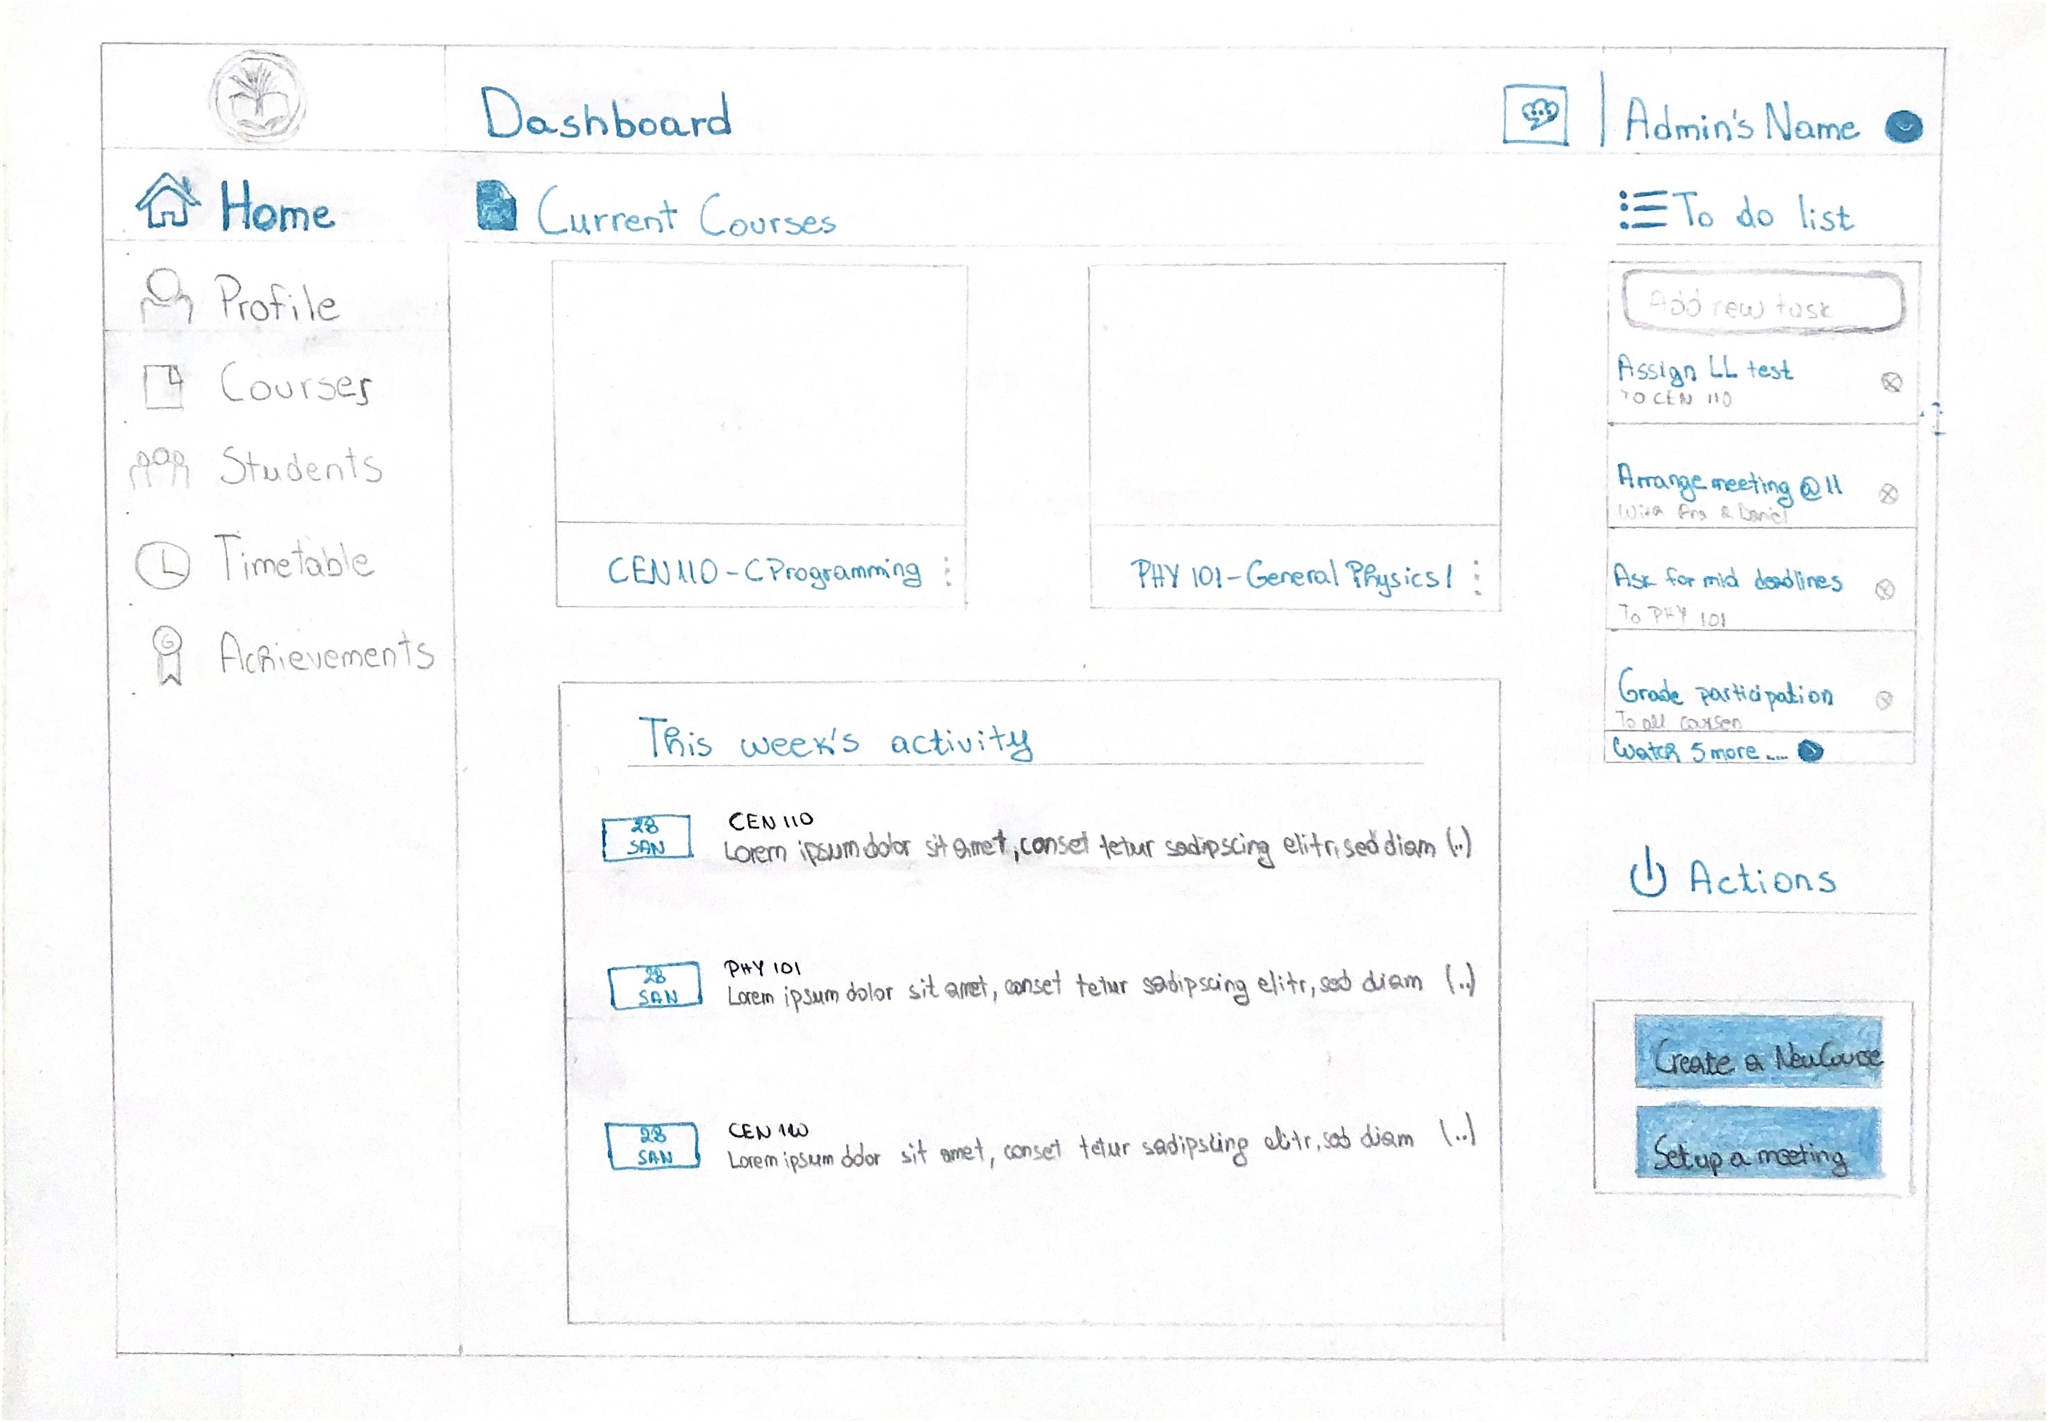 Dashboard
Admin's Name
Home
Profile
Courses
Students
Timetable
Achievements
Current Courses
CEN 110 - C Programming
PHY 101 - General Physics 1
This week's activity
28
SAN
CEN 110
Lorem ipsum dolor sit amet, conset tetur sadipscing elitr, sed diam (..)
28
SAN
PHY 101
Lorem ipsum dolor sit amet, conset tetur sadipscing elitr, sed diam (..)
28
SAN
CEN 110
Lorem ipsum dolor sit amet, conset tetur sadipscing elitr, sed diam (..)
To do list
Add new task
Assign LL test
TO CEN 110
Arrange meeting @ 11
With & Daniel
Ask for mid deadlines
To PHY 101
Grade participation
To all courses
Watch 5 more ....
Actions
Create a New
Set up a meeting